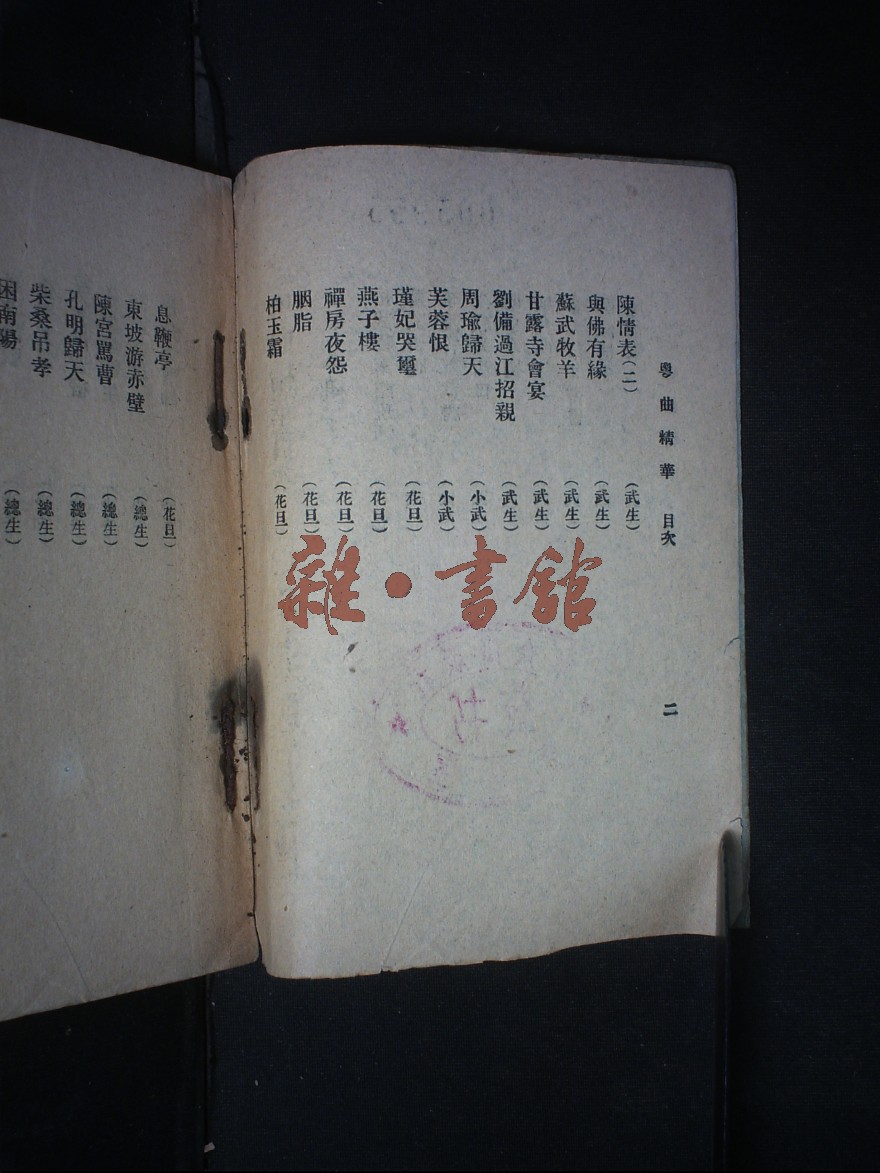 粵曲精華 目次
二
陳情表(二) (武生)
與佛有緣 (武生)
蘇武牧羊 (武生)
甘露寺會宴 (武生)
劉備過江招親 (武生)
周瑜歸天 (小武)
芙蓉恨 (小武)
瑾妃哭璽 (花旦)
燕子樓 (花旦)
禪房夜怨 (花旦)
胭脂 (花旦)
柏玉霜 (花旦)
息鞭亭 (花旦)
東坡游赤壁 (總生)
陳宮罵曹 (總生)
孔明歸天 (總生)
柴桑吊孝 (總生)
困南陽 (總生)
雜·書館